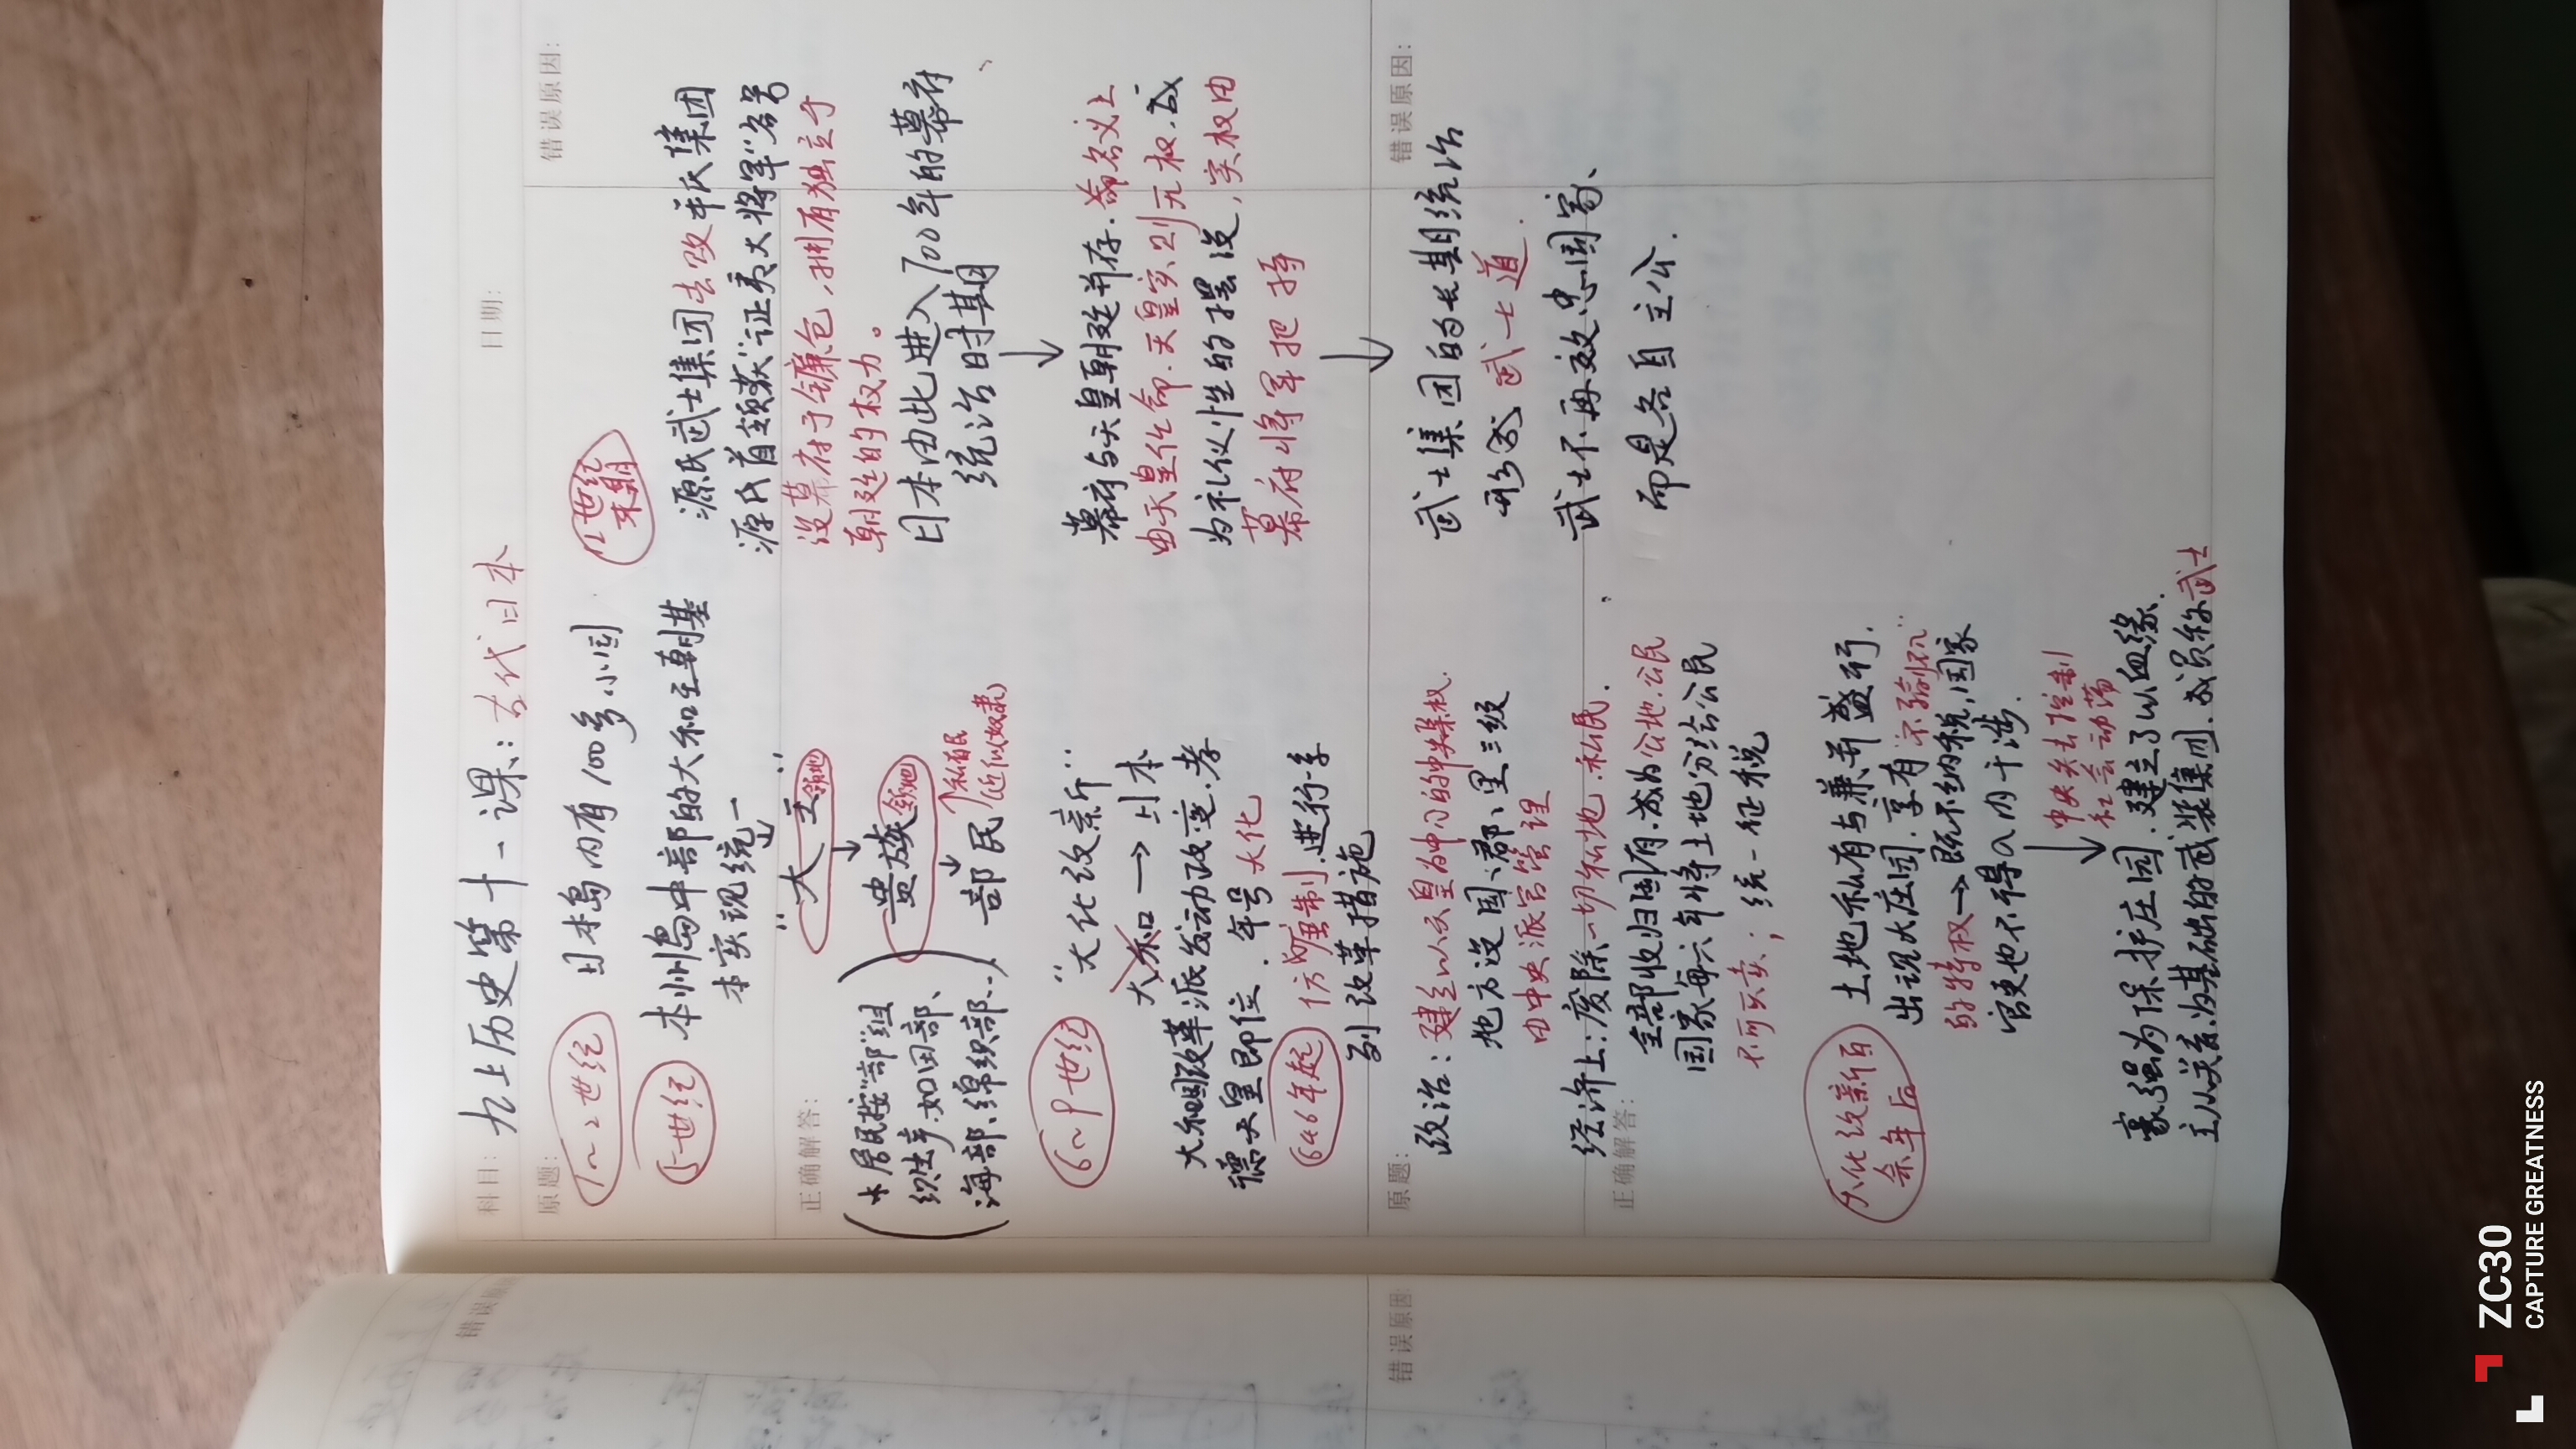 科目：九上历史第十一课：古代日本
日期：
原题：
1~2世纪 日本岛内有100多小国
5世纪 本州岛中部的大和王朝基
本实现统一
正确解答：
"大王"领地
↓
贵族 领地
↓
部民 ↑私有民
(近似奴隶)
(*居民按"部"组
织生产.如田部、
海部、绵织部...)
6~9世纪 "大化改新"
大和→日本
大和国改革派发动政变.孝
德天皇即位.年号大化
646年起 仿唐制.进行系
列改革措施
原题：
政治：建立以天皇为中心的中央集权.
地方设国、郡、里三级
由中央派官管理
经济上：废除一切私地.私民.
正确解答：
全部收归国有.成为公地.公民
国家每六年将土地分给公民
不可买卖；统一征税
大化改新百
余年后
土地私有与兼并盛行.
出现大庄园.享有"不输不入"
的特权→既不纳税,国家
官吏也不得入内干涉.
↓ 中央失去控制
社会动荡
豪强为保护庄园.建立了以血缘.
主从关系为基础的武装集团.成员称武士
错误原因：
12世纪
末期
源氏武士集团击败平氏集团
源氏首领获"征夷大将军"名号
设幕府于镰仓,拥有独立于
朝廷的权力。
日本由此进入700年的幕府
统治时期
↓
幕府与天皇朝廷并存.幕名义上
由天皇任命.天皇实则无权.成
为礼仪性的摆设,实权由
幕府将军把持
↓
错误原因：
武士集团的长期统治
形成武士道.
武士不再效忠国家、
而是各自主公.
错误原因
错误原因
ZC30
CAPTURE GREATNESS